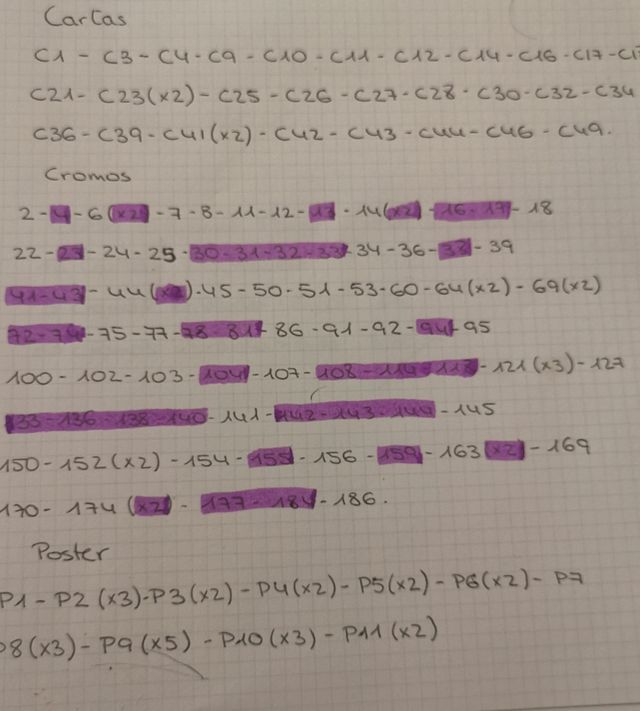 Cartas
C1 - C3 - C4 - C9 - C10 - C11 - C12 - C14 - C16 - C17 -
C21 - C23(x2) - C25 - C26 - C27 - C28 - C30 - C32 - C34
C36 - C39 - C41(x2) - C42 - C43 - C44 - C46 - C49.
Cromos
2 - 4 - 6(x2) - 7 - 8 - 11 - 12 - 13 - 14(x2) - 16 - 17 - 18
22 - 23 - 24 - 25 - 30 - 31 - 32 - 33 - 34 - 36 - 38 - 39
41 - 43 - 44(x2) - 45 - 50 - 51 - 53 - 60 - 64(x2) - 69(x2)
72 - 74 - 75 - 77 - 78 - 81 - 86 - 91 - 92 - 94 - 95
100 - 102 - 103 - 104 - 107 - 108 - 114 - 118 - 121(x3) - 127
133 - 136 - 138 - 140 - 141 - 142 - 143 - 144 - 145
150 - 152(x2) - 154 - 155 - 156 - 159 - 163(x2) - 169
170 - 174(x2) - 177 - 184 - 186.
Poster
P1 - P2(x3) - P3(x2) - P4(x2) - P5(x2) - P6(x2) - P7
P8(x3) - P9(x5) - P10(x3) - P11(x2)